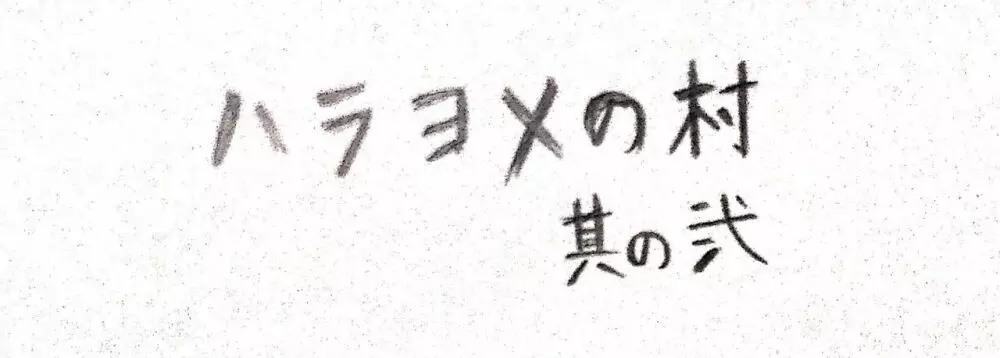 ハラヨメの村
其の弐